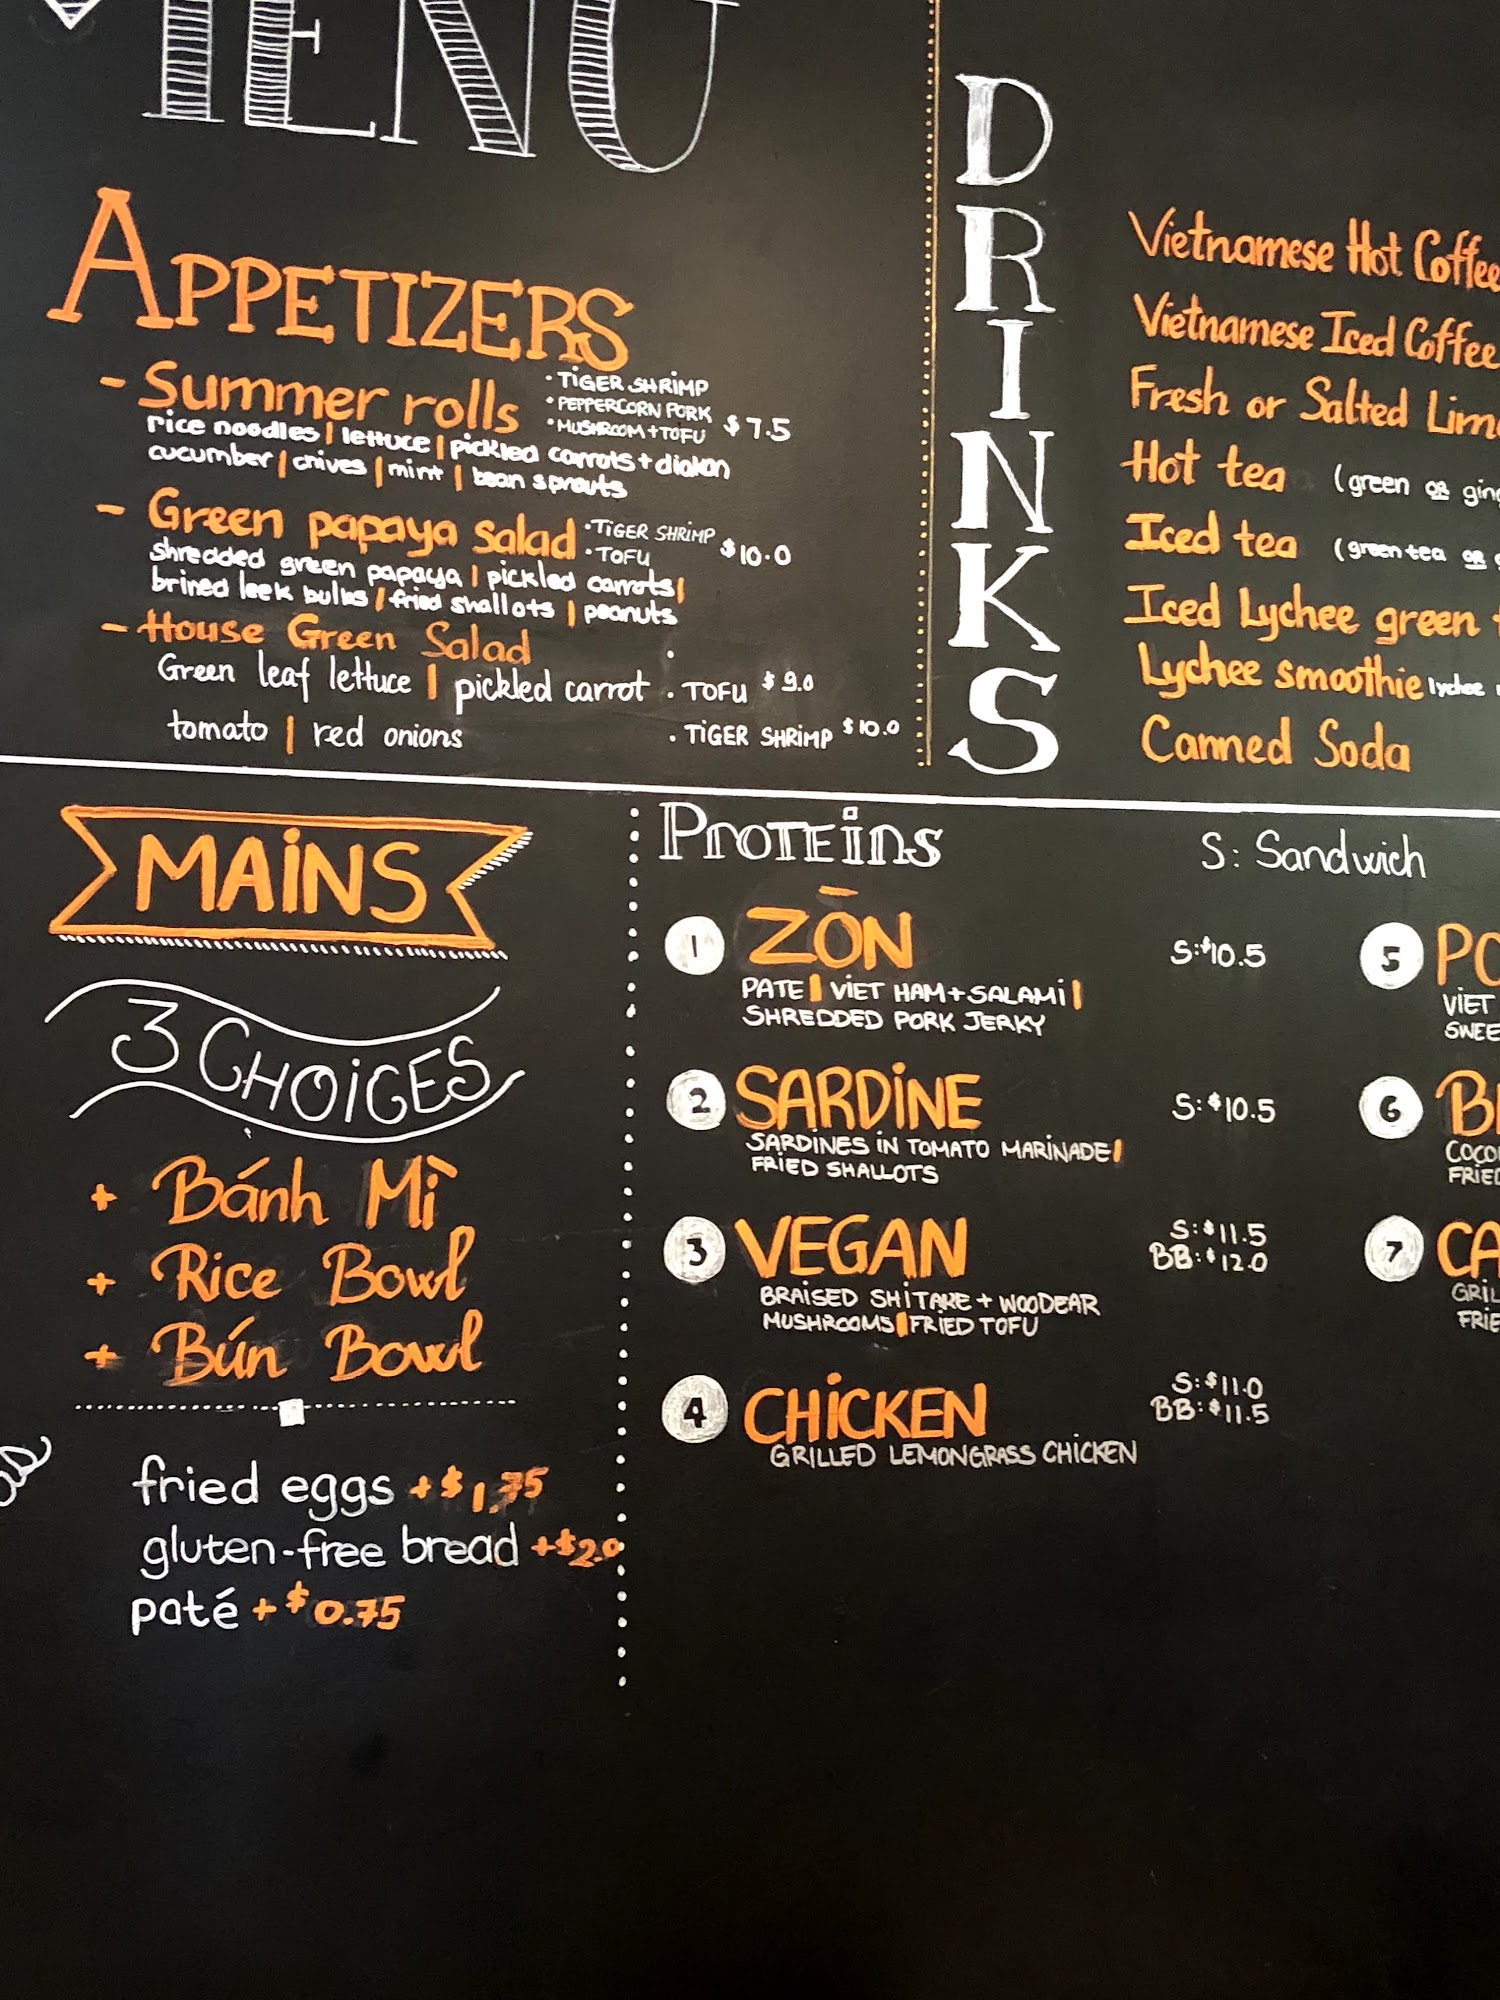 MENU
APPETIZERS
- Summer rolls
• TIGER SHRIMP
• PEPPERCORN PORK
• MUSHROOM + TOFU
$7.5
rice noodles | lettuce | pickled carrots + diakon
cucumber | chives | mint | bean sprouts
- Green papaya Salad
• TIGER SHRIMP
• TOFU
$10.0
shredded green papaya | pickled carrots |
brined leek bulbs | fried shallots | peanuts
- House Green Salad
Green leaf lettuce | pickled carrot
• TOFU $9.0
tomato | red onions
• TIGER SHRIMP $10.0
DRINKS
Vietnamese Hot Coffee
Vietnamese Iced Coffee
Fresh or Salted
Hot tea (green OR
Iced tea (green tea OR
Iced Lychee green
Lychee smoothie lychee
Canned Soda
MAINS
3 CHOICES
+ Bánh Mì
+ Rice Bowl
+ Bún Bowl
fried eggs +$1.75
gluten-free bread +$2.0
paté +$0.75
Proteins
S: Sandwich
1 ZŌN S:$10.5
PATE | VIET HAM + SALAMI |
SHREDDED PORK JERKY
2 SARDINE S:$10.5
SARDINES IN TOMATO MARINADE |
FRIED SHALLOTS
3 VEGAN S:$11.5
BB:$12.0
BRAISED SHITAKE + WOODEAR
MUSHROOMS | FRIED TOFU
4 CHICKEN S:$11.0
BB:$11.5
GRILLED LEMONGRASS CHICKEN
5
VIET
6
7